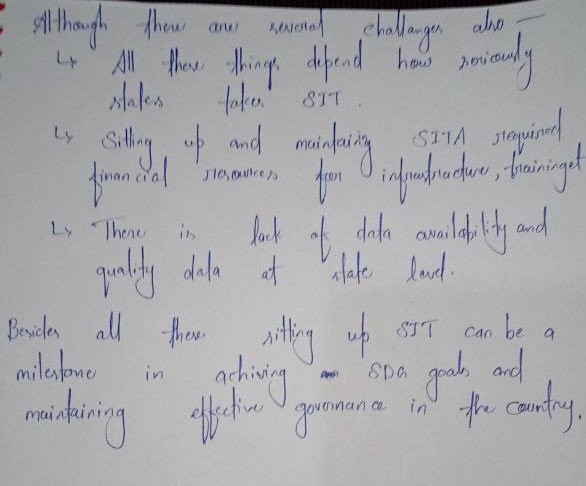 Although there are several challanges also —
↳ All these things depend how seriously
states takes SIT.
↳ Sitting up and maintaing SITA required
financial resources for infrastructure, training et
↳ There is lack of data availability and
quality data at state level.
Besides all these sitting up SIT can be a
milestone in achiving SDG goals and
maintaining effective governance in the country.